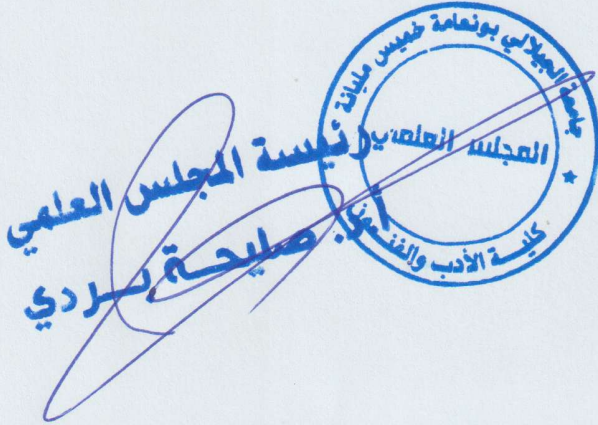 جامعة الجيلالي بونعامة خميس مليانة
المجلس العلمي
كلية الأدب والفنون
رئيسة المجلس العلمي
أ.د. صليحة بردي